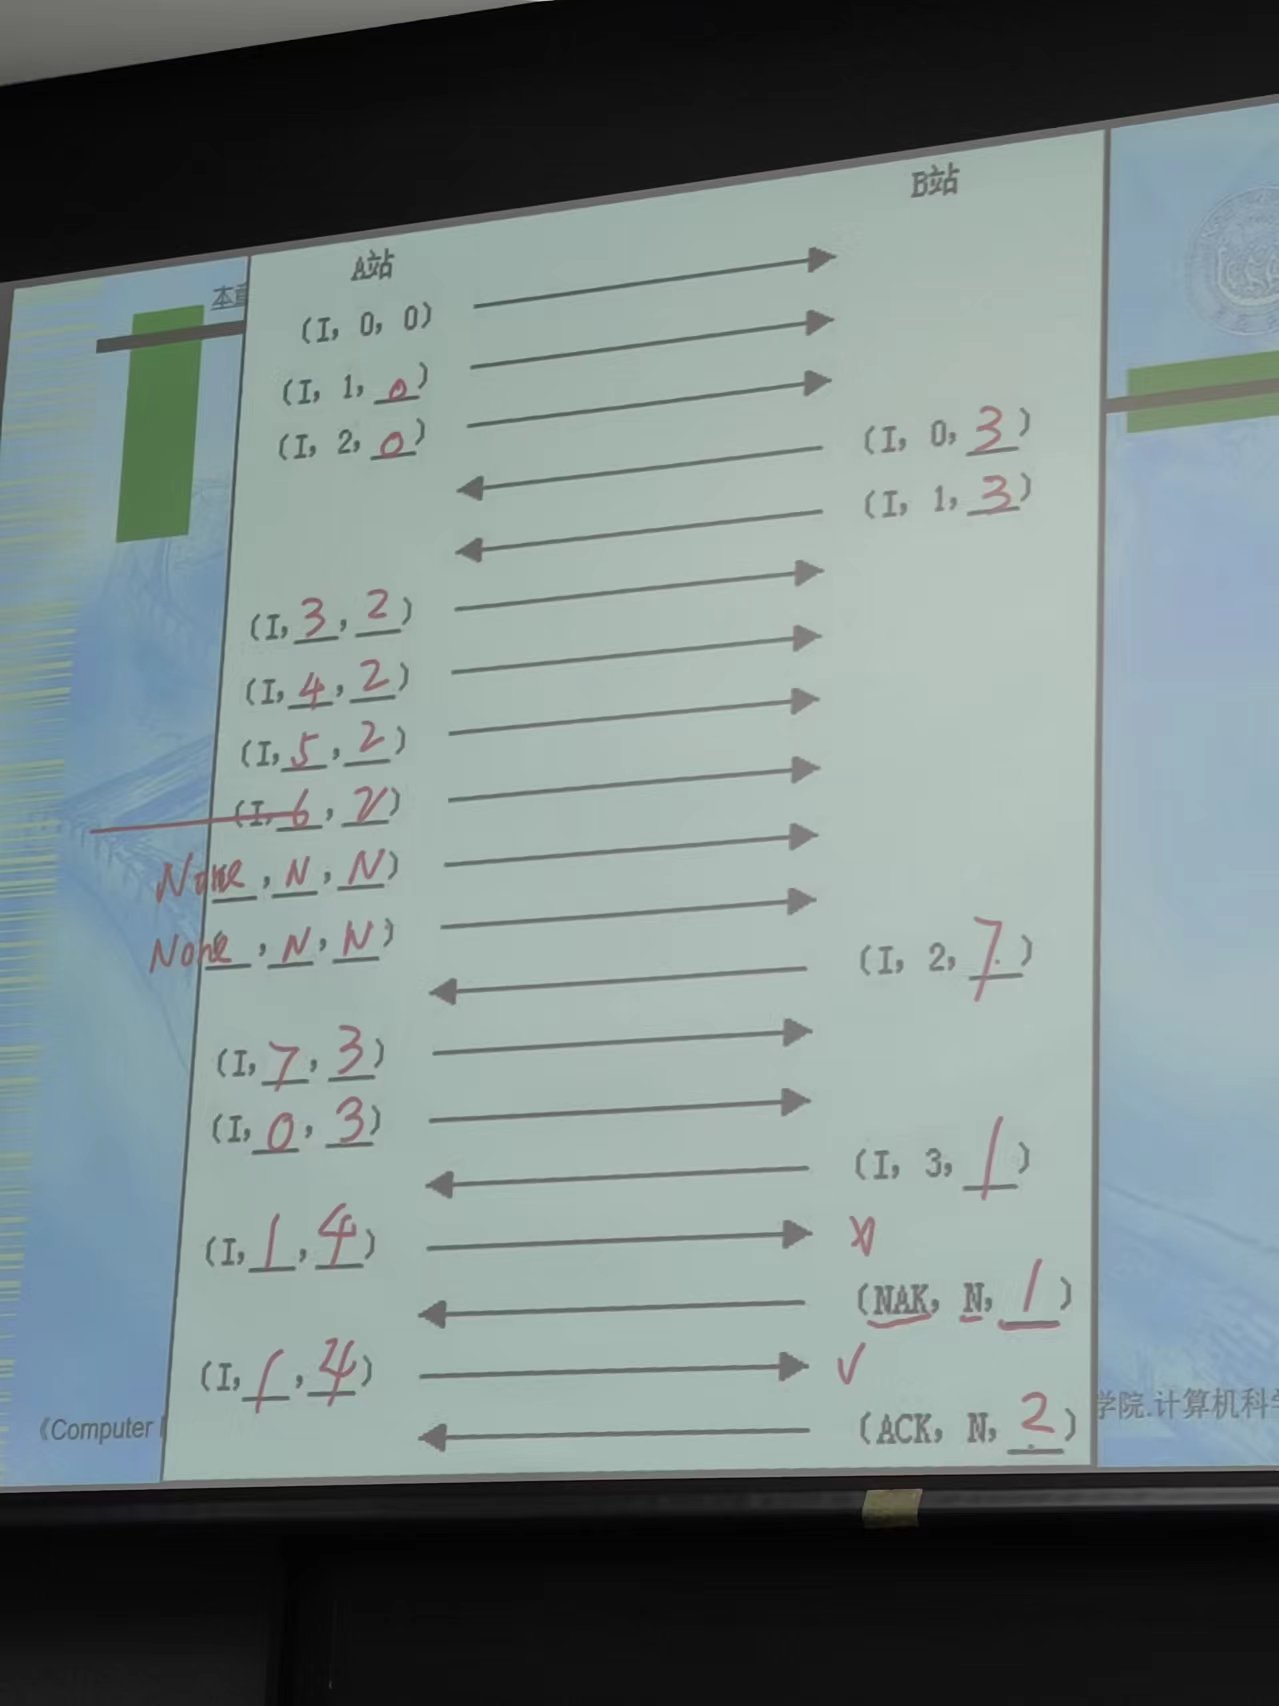 B站
A站
本章
(I, 0, 0)
(I, 1, 0)
(I, 2, 0)
(I, 0, 3)
(I, 1, 3)
(I, 3, 2)
(I, 4, 2)
(I, 5, 2)
(I, 6, 2)
None, N, N)
None, N, N)
(I, 2, 7)
(I, 7, 3)
(I, 0, 3)
(I, 3, 1)
(I, 1, 4)
(NAK, N, 1)
(I, 1, 4)
(ACK, N, 2)
《Computer
学院.计算机科学